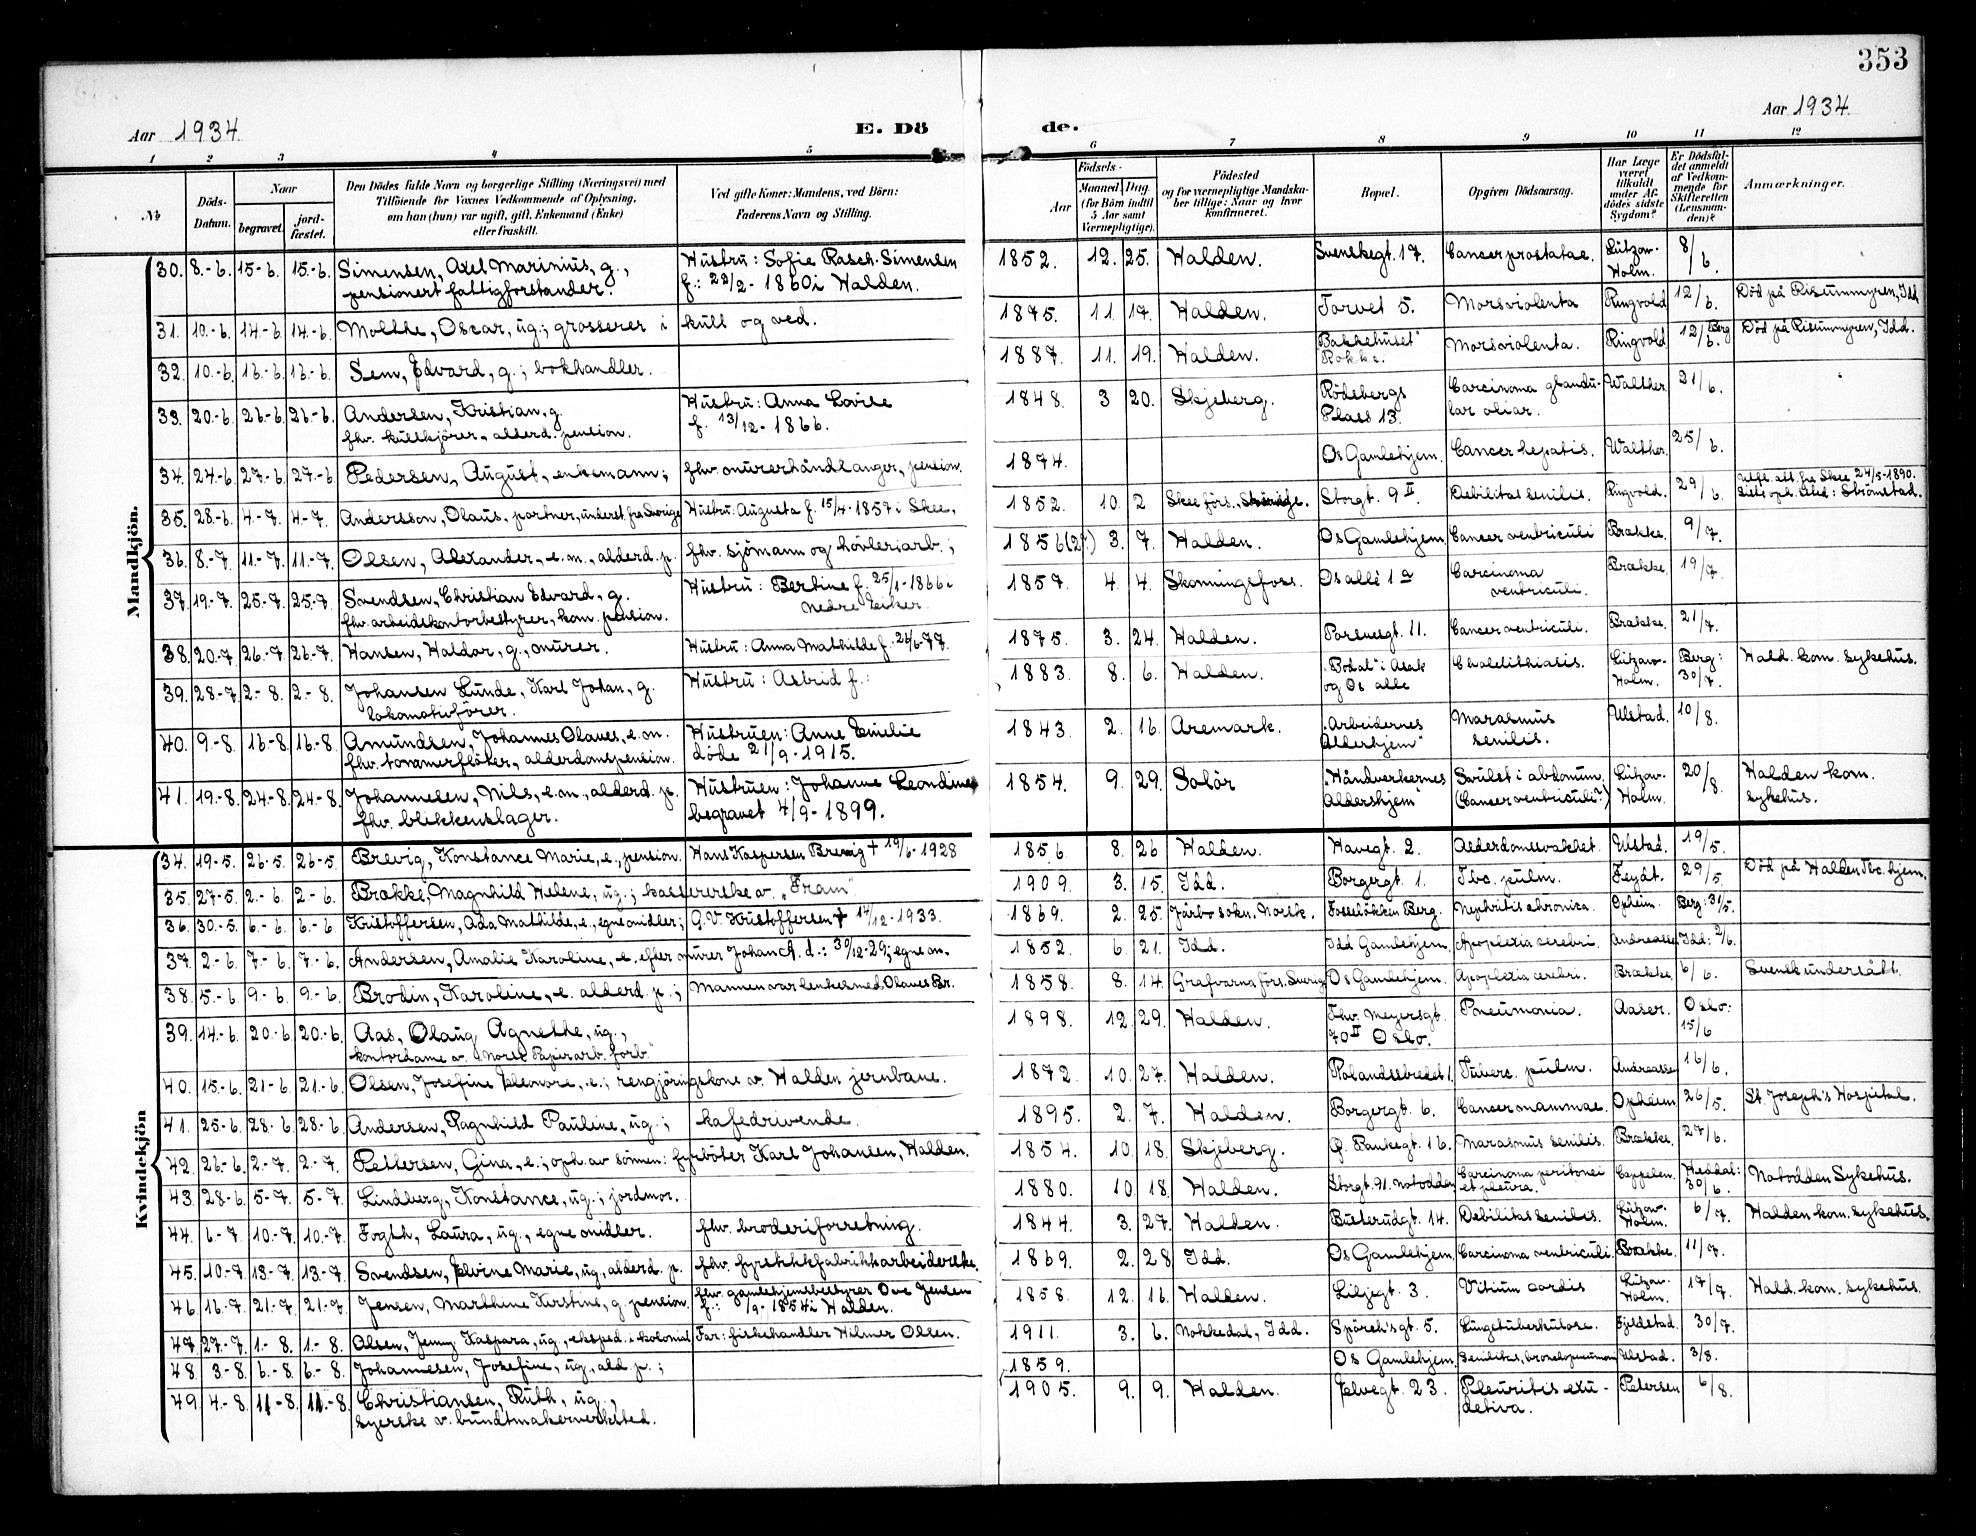 353
Aar 1934.
E. Dö
de.
Aar 1934.
1 2 3 4 5 6 7 8 9 10 11 12
№
Döds-
Datum.
Naar
begravet.
jord-
fæstet.
Den Dödes fulde Navn og borgerlige Stilling (Næringsvei) med
Tilföiende for Voxnes Vedkommende af Oplysning,
om han (hun) var ugift, gift, Enkemand (Enke)
eller fraskilt.
Ved gifte Koner: Mandens, ved Börn:
Faderens Navn og Stilling.
Födsels-
Aar
Maaned Dag.
(for Börn indtil
5 Aar samt
Værnepligtige).
Födested
og for værnepligtige Mandska-
ber tillige: Naar og hvor
konfirmeret.
Bopæl.
Opgiven Dödsaarsag.
Har Læge
været
tilkaldt
under Af-
dödes sidste
Sygdom?
Er Dödsfal-
det anmeldt
af Vedkom-
mende for
Skifteretten
(Lensman-
den)?
Anmærkninger.
Mandkjön.
30. 8.-6. 15-6. 15.-6. Simensen, Axel Marinius, g., Hustru: Sofie Rasch-Simensen 1852. 12. 25. Halden. Svenskegt. 17. Cancer prostatae. Lützow- 8/6.
pensionert fattigforstander. f.: 22/2- 1860 i Halden. Holm.
31. 10.-6. 14-6. 14-6. Molthe, Oscar, ug.; grosserer i kull og ved. 1875. 11. 17. Halden. Torvet 5. Mors violenta Ringvold 12/6. Död på Risummyren, Idd
32. 10.-6. 16.-6. 16.-6. Sem, Edvard, g.; bokhandler. 1887. 11. 19. Halden. Bakkehuset" Mors violenta. Ringvold 12/6. Berg Död på Risummyren, Idd.
Rokke.
33. 20.-6. 26-6. 26-6. Andersen, Kristian, g. Hustru: Anna Lovise 1848. 3 20. Skjeberg. Rödsbergs Carcinoma glandu- Walther 21/6.
fhv. kullkjörer, alderd. pension. f. 13/12- 1866. Plass 13.
34. 24.-6. 27.-6. 27.-6. Pedersen, August, enkemann; fhv. murerhåndlanger, pension. 1874. Os Gamlehjem. Cancer hepatis. Walther. 25/6.
35. 28.-6. 4.-7. 4-7. Andersson, Olaus, partner, underst. fra Sverige Hustru: Augusta f. 15/4- 1857 i Skee. 1852. 10. 2 Skee förs., Sverige. Storgt. 9 II. Debilitas senilis. Ringvold. 29/6. Utfl. att. fra Skee 24/5-1890.
Strömstad.
36. 8.-7. 11.-7. 11.-7. Olsen, Alexander, e.m., alderd. p. fhv. sjömann og hövleriarb.; 1856 (27.) 3. 7. Halden. Os Gamlehjem. Cancer ventriculi Brække. 9/7.
37. 19.-7. 25.-7. 25-7. Svendsen, Christian Edvard, g. Hustru: Bertine f. 25/1-1866 i 1857. 4 4. Skonningsfoss. Os allé 1 a Carcinoma Brække. 19/7.
fhv. arbeidskontorbestyrer, kom. pension. Nedre Eiker. ventriculi.
38. 20.-7. 26.-7. 26-7. Hansen, Haldor, g., murer. Hustru: Anna Mathilde f. 26/6-77. 1875. 3. 24. Halden. Porsnesgt. 11. Cancer ventriculi. Brække. 21/7.
39. 28-7. 2.- 8. 2.- 8. Johansen Lunde, Karl Johan, g. Hustru: Astrid f.: 1883. 8. 6. Halden. "Bokal" i Asak Cholelithiasis. Lützow- Berg: Hald. kom. sykehus.
lokomotivförer. og Os alle Holm. 30/7.
40. 9.-8. 16.-8. 16.-8. Amundsen, Johannes Olaves, e.m. Hustruen: Anne Emilie 1843. 2. 16. Aremark. "Arbeidernes Marasmus Ulstad. 10/8.
fhv. tömmerflöter, alderdomspension. döde 21/9-1915. Alderhjem" senilis.
41. 19.-8. 24-8. 24-8. Johannesen, Nils, e.m., alderd. p. Hustruen: Johanne Leondine 1854. 9. 29. Solör "Håndverkernes Svulst i abdomen. Lützow- 20/8. Halden kom.
fhv. blikkenslager. begravet 4/9-1899. Aldershjem" (Cancer ventriculi?) Holm. sykehus.
Kvindekjön
34. 19-5. 26-5. 26-5. Brevig, Konstance Marie, e., pension. Hans Kaspersen Brevig † 19/6-1928 1856. 8. 26 Halden. Havegt. 2. Alderdomssvakhet. Ulstad. 19/5.
35. 27-5. 2.-6. 2.-6. Brække, Magnhild Helene, ug.; kassererske v. "Fram". 1909. 3. 15. Idd. Borgergt. 1. Tbc. pulm. Feydt. 29/5. Död på Halden Tbc. hjem.
36. 30.-5. 6.-6. 6.-6 Kristoffersen, Ada Mathilde, e., egne midler; G.V. Kristoffersen † 14/12-1933. 1869. 2. 25. Järbo sokn, Norrk. Fosseløkken Berg. Nephritis chronica. Opheim. Berg: 31/5.
37. 2.-6. 7.-6. 7.-6. Andersen, Amalie Karoline, e. efter murer Johan A. d.: 30/12-29; egne m. 1852. 6. 21. Idd. Idd Gamlehjem. Apoplexia cerebri. Andreassen Idd: 2/6.
38. 5.-6. 9.-6. 9.-6. Brodin, Karoline, e. alderd. p.; Mannen var lenkesmed Olaves Br. 1858. 8. 14. Grafvarna förs. Sverige Os Gamlehjem. Apoplexia cerebri. Brække. 6/6. Svensk undersått.
39. 14-6. 20.-6. 20.-6. Aas, Olaug Agnethe, ug., 1898. 12. 29. Halden. Thv. Meyersgt. Pneumonia. Aaser. Oslo:
kontordame v. "Norsk Papirarb. forb." 70 II Oslo. 15/6
40. 15.-6. 21-6. 21.-6. Olsen, Josefine Eleonore, e.; rengjöringskone v. Halden jernbane. 1872. 10. 27. Halden. Rolandsbredet 1. Tuberc. pulm. Andreassen 16/6.
41. 25-6. 28.-6. 28.-6. Andersen, Ragnhild Pauline, ug.; kafedrivende. 1895. 2. 7. Halden. Borgergt. 6. Cancer mammae. Opheim 26/5. St. Joseph's Hospital.
42. 26.-6. 2.-7. 2.-7. Pettersen, Gina, e.; oph. av sönnen: fyrböter Karl Johansen, Halden. 1854. 10. 18. Skjeberg. P. Pankegt. 16. Marasmus senilis. Brække. 27/6.
43. 28-6. 5-7. 5-7. Lindberg, Konstance, ug.; jordmor. 1880. 10. 18. Halden. Storgt. 91. Notodden Carcinoma peritonei Cappelen. Heddal: Notodden Sykehus.
et pleura. 30/6.
44. 6-7. 10.-7. 10.-7. Fogth, Laura, ug., egne midler. fhv. broderiforretning. 1844. 3. 27. Halden. Busterudgt. 14. Debilitas senilis. Lützow- 6/7. Halden kom. sykehus.
Holm.
45. 10.-7. 13.-7. 13.-7. Svendsen, Elvine Marie, ug., alderd. p. fhv. fyrstikkfabrikkarbeiderske. 1869. 2. 28. Idd. Os Gamlehjem. Carcinoma ventriculi. Brække. 11/7.
46. 16.-7. 21.-7. 21.-7. Jensen, Marthine Kirstine, g. pension. fhv. gamlehjemsbestyrer Ove Jensen 1858. 12. 16. Halden. Liljegt. 3. Vitium cordis Lützow- 17/7. Hald. kom. sykehus.
f.: 1/9-1854 i Halden. Holm.
47. 27-7. 1.- 8. 1.- 8. Olsen, Jenny Kaspara, ug., eksped. i kolonial Far: fiskehandler Hilmer Olsen. 1911. 3. 6. Nokkedal, Idd. Spörch'sgt. 5. Lungetuberkulose. Fjeldstad. 30/7.
48. 3-8. 6.-8. 6-8. Johannesen, Josefine, ug., ald. p.; 1859. Os Gamlehjem. Senilitas, bronchopneumoni Ulstad. 3/8.
49. 4.-8. 11-8. 11.-8. Christiansen, Ruth, ug., 1905. 9. 9. Halden. Elvegt. 23. Pleuritis exu- Petersen 6/8.
syerske v. buntmakerverksted. dativa.